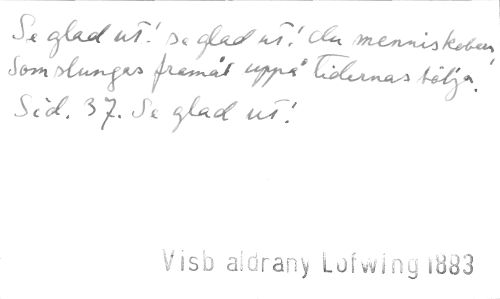 Se glad ut! se glad ut! du menniskobarn,
Som slungas framåt uppå tidernas bölja!
Sid. 37. Se glad ut!
Visb aldrany Lofwing 1883